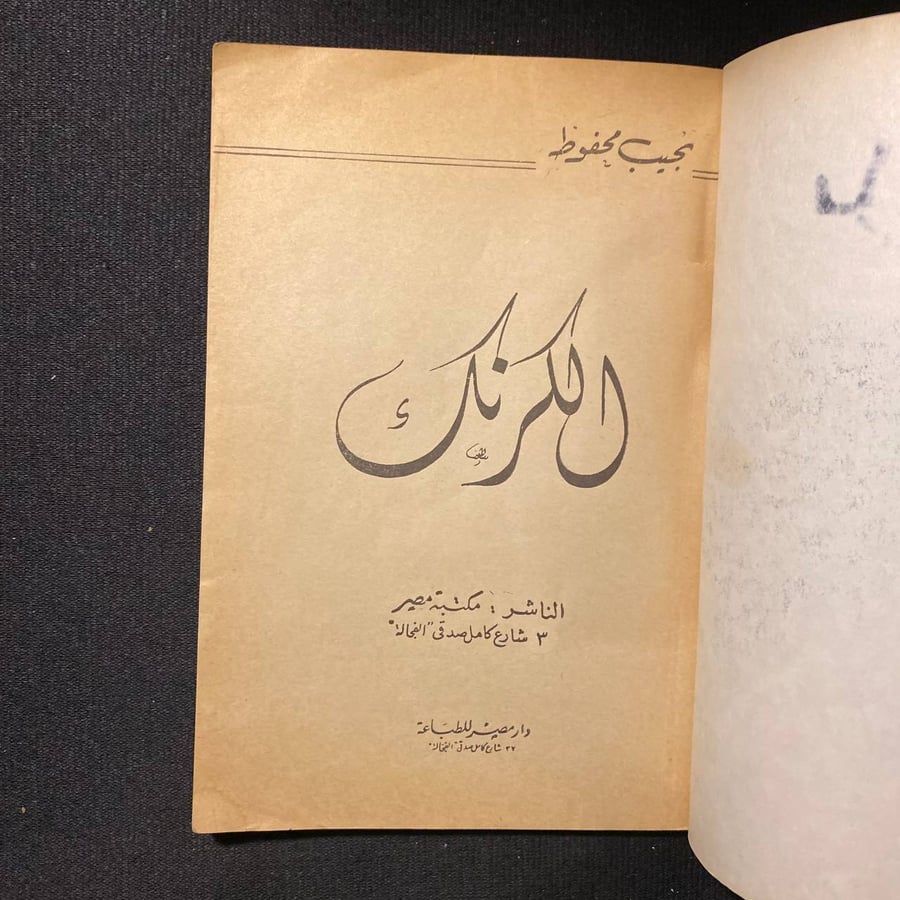 نجيب محفوظ
الكرنك
الناشر : مكتبة مصر
٣ شارع كامل صدقى "الفجالة"
دار مصر للطباعة
٣٧ شارع كامل صدقى "الفجالة"